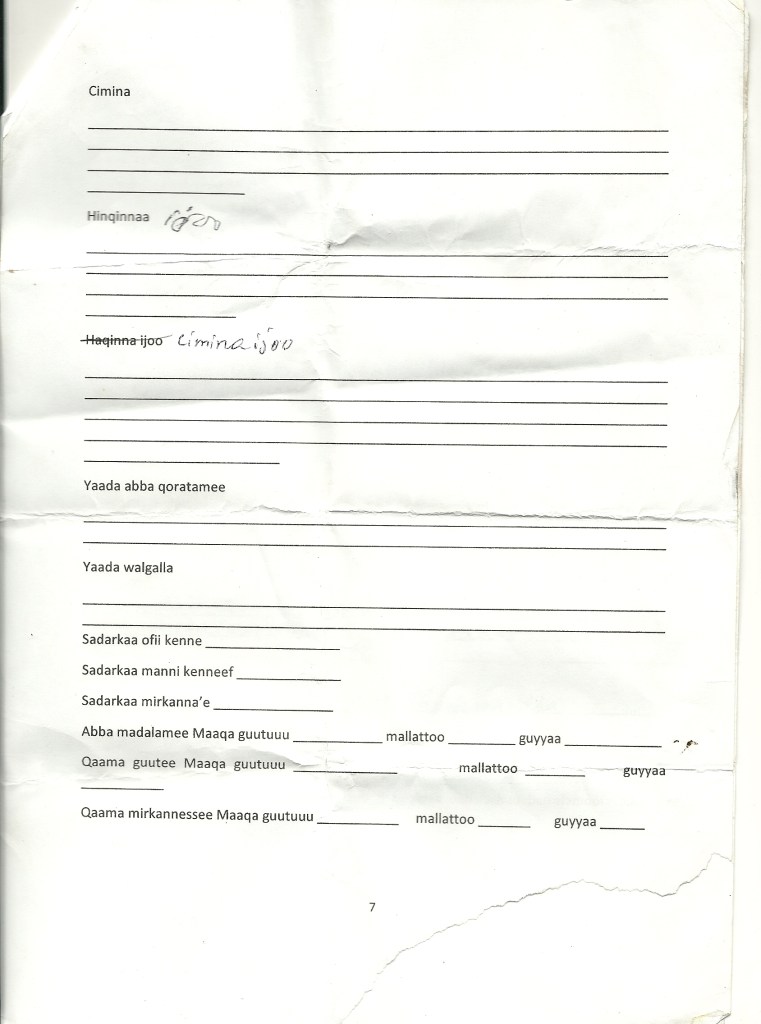 Cimina
Hinqinnaa ijoo
Haqinna ijoo Cimina ijoo
Yaada abba qoratamee
Yaada walgalla
Sadarkaa ofii kenne ____________
Sadarkaa manni kenneef ____________
Sadarkaa mirkanna’e ____________
Abba madalamee Maaqa guutuuu ____________ mallattoo ________ guyyaa ____________
Qaama guutee Maaqa guutuuu ____________ mallattoo ________ guyyaa
____________
Qaama mirkannessee Maaqa guutuuu ____________ mallattoo ________ guyyaa ______
7